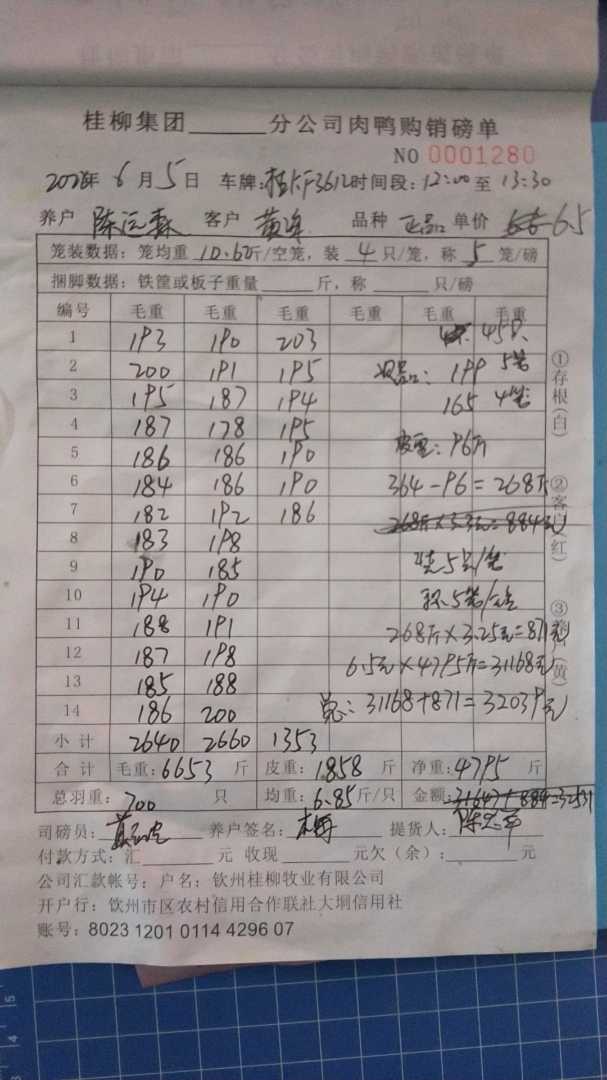 桂柳集团______分公司肉鸭购销磅单
NO 0001280
6月5日 车牌:桂 3612 时间段:12:00至13:30
养户 陈 森 客户 黄 品种 正品 单价 6.5
笼装数据:笼均重 10.62斤/空笼,装 4 只/笼,称 5 笼/磅
捆脚数据:铁筐或板子重量______斤,称______只/磅
编号 毛重 毛重 毛重 毛重 毛重 毛重
1 193 190 203 45只
2 200 191 195 次品: 199 5笼
3 195 187 194 165 4笼
4 187 178 195
5 186 186 190 皮重: 96斤
6 184 186 190 364-96=268斤
7 182 192 186 268斤×3.3元=884元
8 183 198
9 190 185 装5只/笼
10 194 190 称5笼/磅
11 188 191 268斤×3.25元=871元
12 187 198 6.5元×4795斤=31168元
13 185 188
14 186 200 总: 31168+871=32039元
小计 2640 2660 1353
合计 毛重:6653 斤 皮重:1858 斤 净重:4795 斤
总羽重:700 只 均重:6.85斤/只 金额:31647+884=32531
司磅员: 养户签名: 提货人:陈
付款方式:汇______元 收现______元欠(余):______元
公司汇款帐号:户名:钦州桂柳牧业有限公司
开户行:钦州市区农村信用合作联社大垌信用社
账号:8023 1201 0114 4296 07
①存根(白)
②客户(红)
③ (黄)